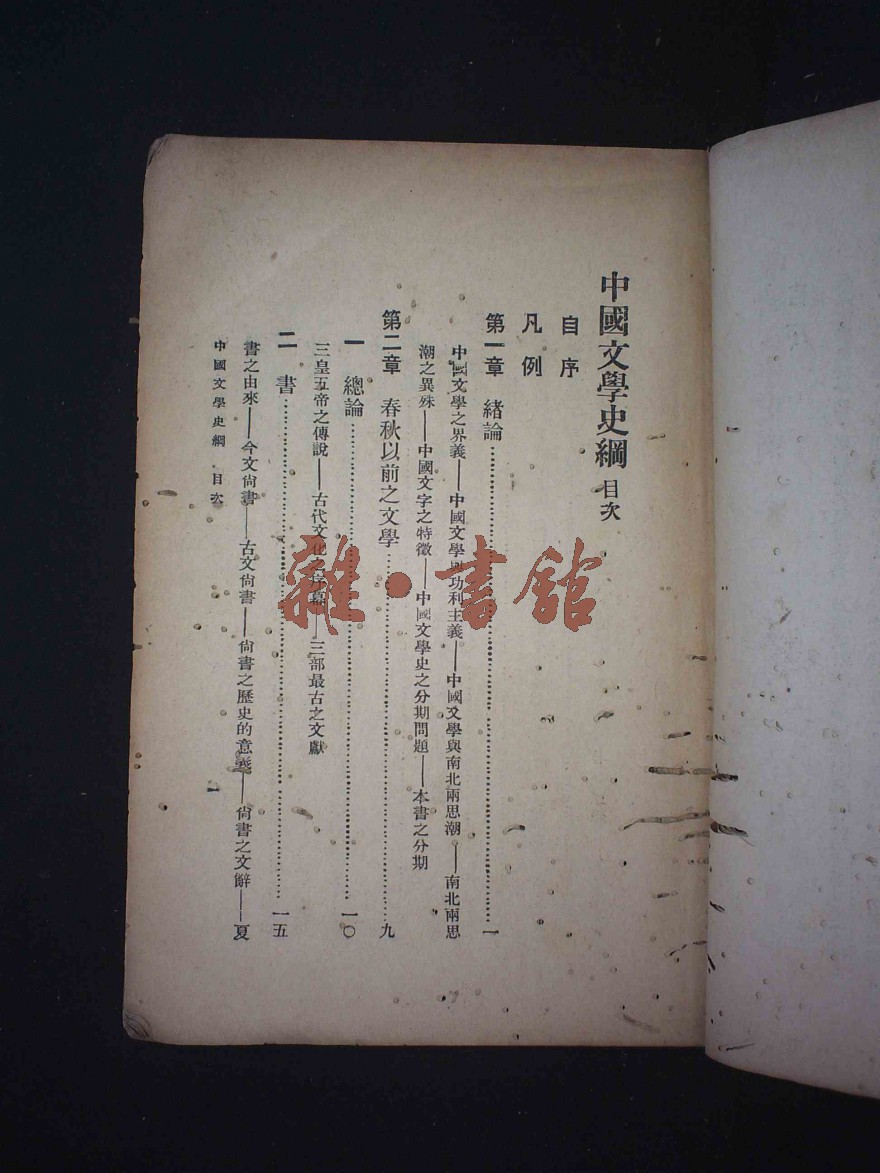 中國文學史綱 目次
自序
凡例
第一章 緒論……一
中國文學之界義——中國文學與功利主義——中國文學與南北兩思潮——南北兩思
潮之異殊——中國文字之特徵——中國文學史之分期問題——本書之分期
第二章 春秋以前之文學……九
一 總論……一〇
三皇五帝之傳說——古代文化之序幕——三部最古之文獻
二 書……一五
書之由來——今文尙書——古文尙書——尙書之歷史的意義——尙書之文辭——夏
中國文學史綱 目次
一
雜·書館